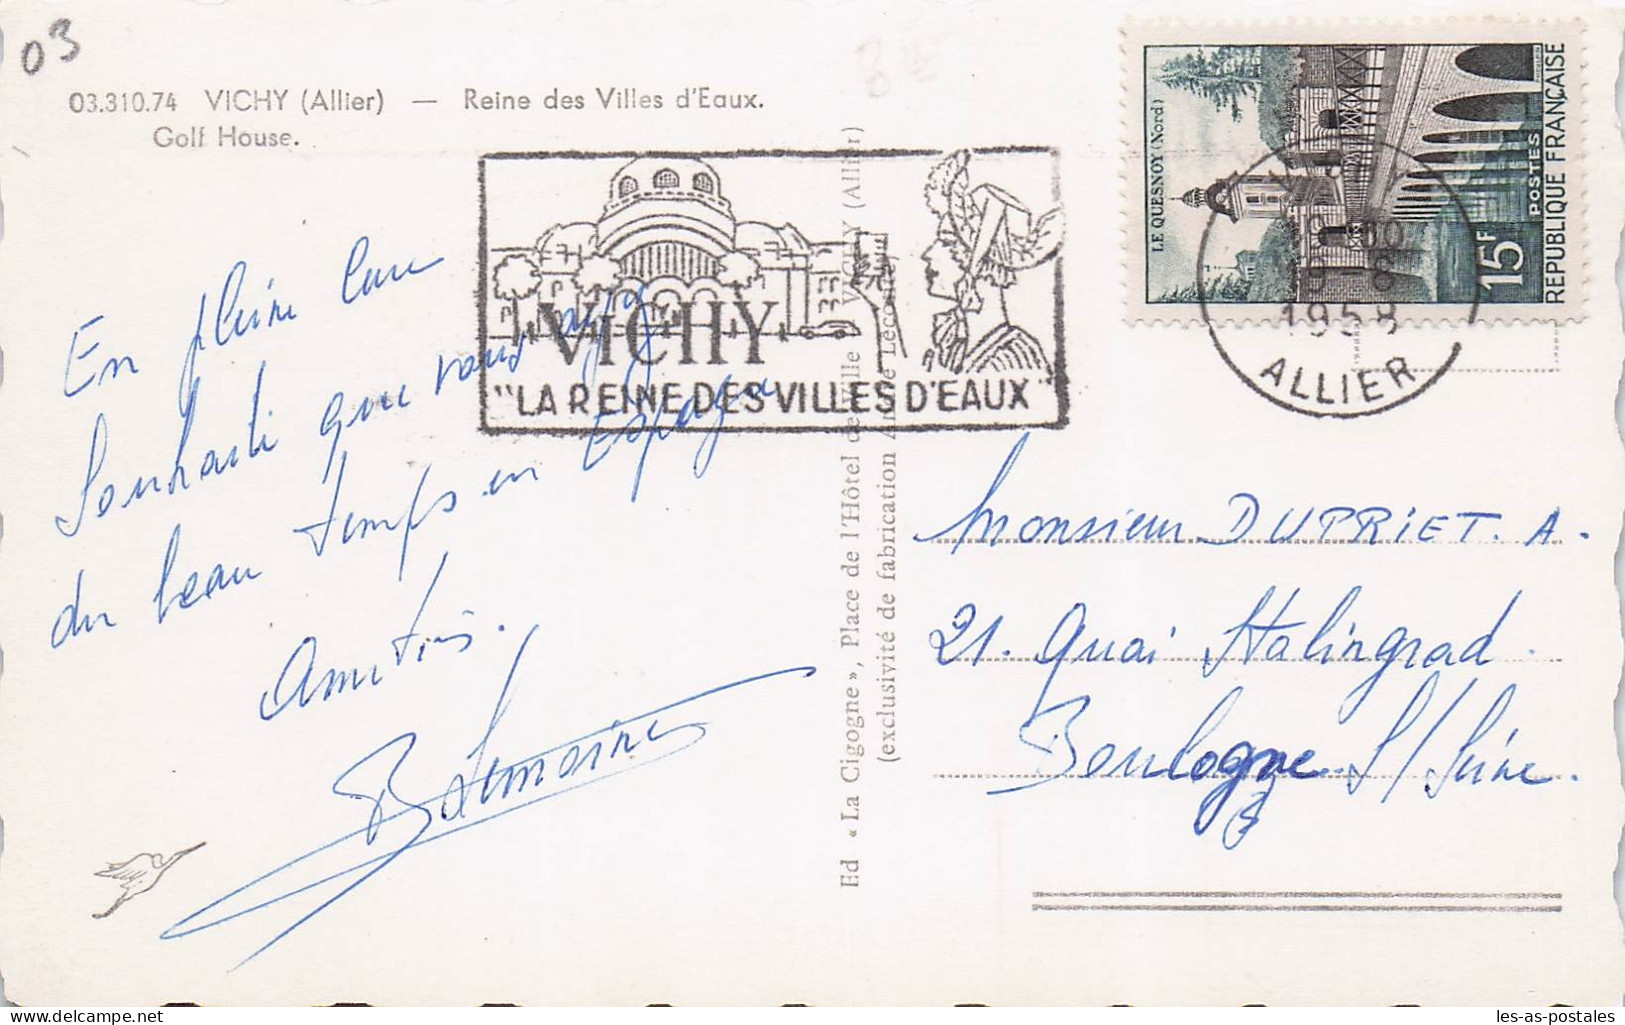 03
03.310.74 VICHY (Allier) — Reine des Villes d'Eaux.
Golf House.
En pleine cure
Souhaite que vous ayez
du beau temps en Espagne
Amitiés.
B Lemoine
VICHY
"LA REINE DES VILLES D'EAUX"
Ed « La Cigogne », Place de l'Hôtel de Ville VICHY (Allier)
(exclusivité de fabrication
LE QUESNOY (Nord)
15F
POSTES
REPUBLIQUE FRANÇAISE
1958
ALLIER
Monsieur DUPRIET. A.
21. Quai Stalingrad.
Boulogne S/Seine.
delcampe.net
les-as-postales